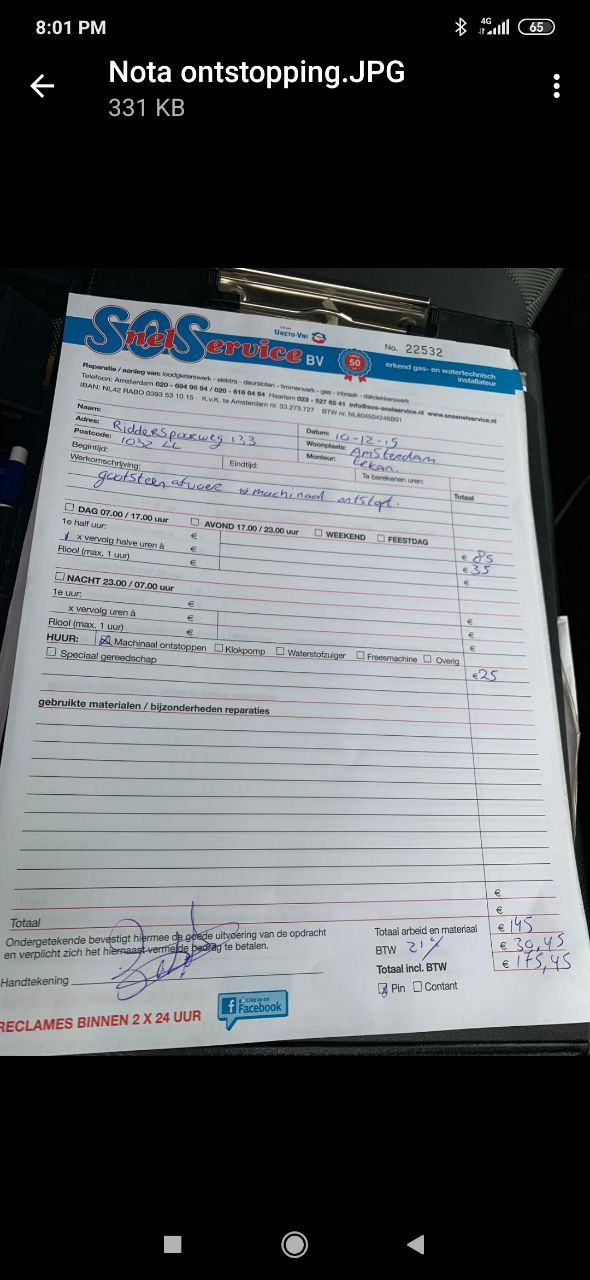 8:01 PM
4G
65
Nota ontstopping.JPG
331 KB
SOS
Snel Service BV
UNETO-VNI
50
No. 22532
erkend gas- en watertechnisch
installateur
Reparatie / aanleg van: loodgieterswerk - elektra - deursloten - timmerwerk - gas - inbraak - dakdekkerswerk
Telefoon: Amsterdam 020 - 694 95 94 / 020 - 616 64 64 Haarlem 023 - 527 65 41 info@sos-snelservice.nl www.sossnelservice.nl
IBAN: NL42 RABO 0393 53 10 15 K.v.K. te Amsterdam nr. 33.273.727 BTW nr. NL804504246B01
Naam:
Adres: Ridderspoorweg 133
Postcode: 1032 LL
Datum: 10-12-19
Woonplaats: Amsterdam
Monteur: Erkan.
Begintijd:
Eindtijd:
Te berekenen uren:
Werkomschrijving:
Totaal
gootsteen afvoer machinaal ontstopt.
DAG 07.00 / 17.00 uur AVOND 17.00 / 23.00 uur WEEKEND FEESTDAG
1e half uur: € € 85
1 x vervolg halve uren à € € 35
Riool (max. 1 uur) € €
NACHT 23.00 / 07.00 uur
1e uur: € €
x vervolg uren à € €
Riool (max. 1 uur) € €
HUUR: Machinaal ontstoppen Klokpomp Waterstofzuiger Freesmachine Overig
Speciaal gereedschap €25
gebruikte materialen / bijzonderheden reparaties
€
Totaal €
Ondergetekende bevestigt hiermee de goede uitvoering van de opdracht
en verplicht zich het hiernaast vermelde bedrag te betalen.
Totaal arbeid en materiaal € 145
BTW 21% € 30,45
Totaal incl. BTW € 175,45
Handtekening
Pin Contant
Like us on
Facebook
RECLAMES BINNEN 2 X 24 UUR